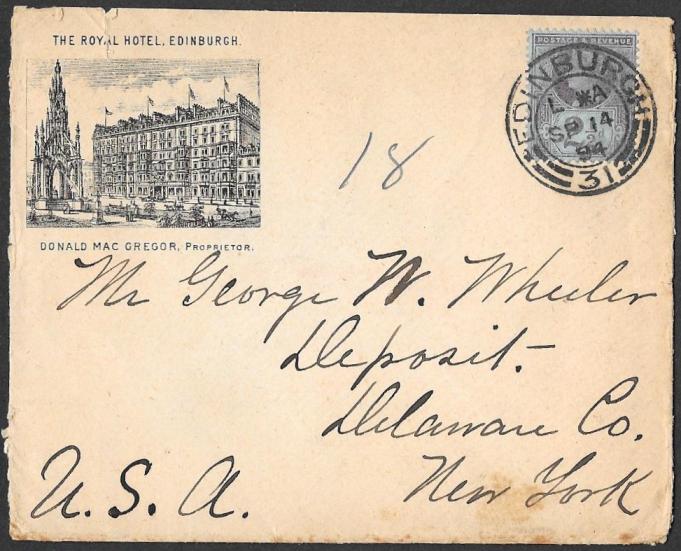 THE ROYAL HOTEL, EDINBURGH.
DONALD MAC GREGOR, PROPRIETOR.
POSTAGE & REVENUE
EDINBURGH
SP 14
94
31
18
Mr George W. Wheeler
Deposit.
Delaware Co.
New York
U. S. A.